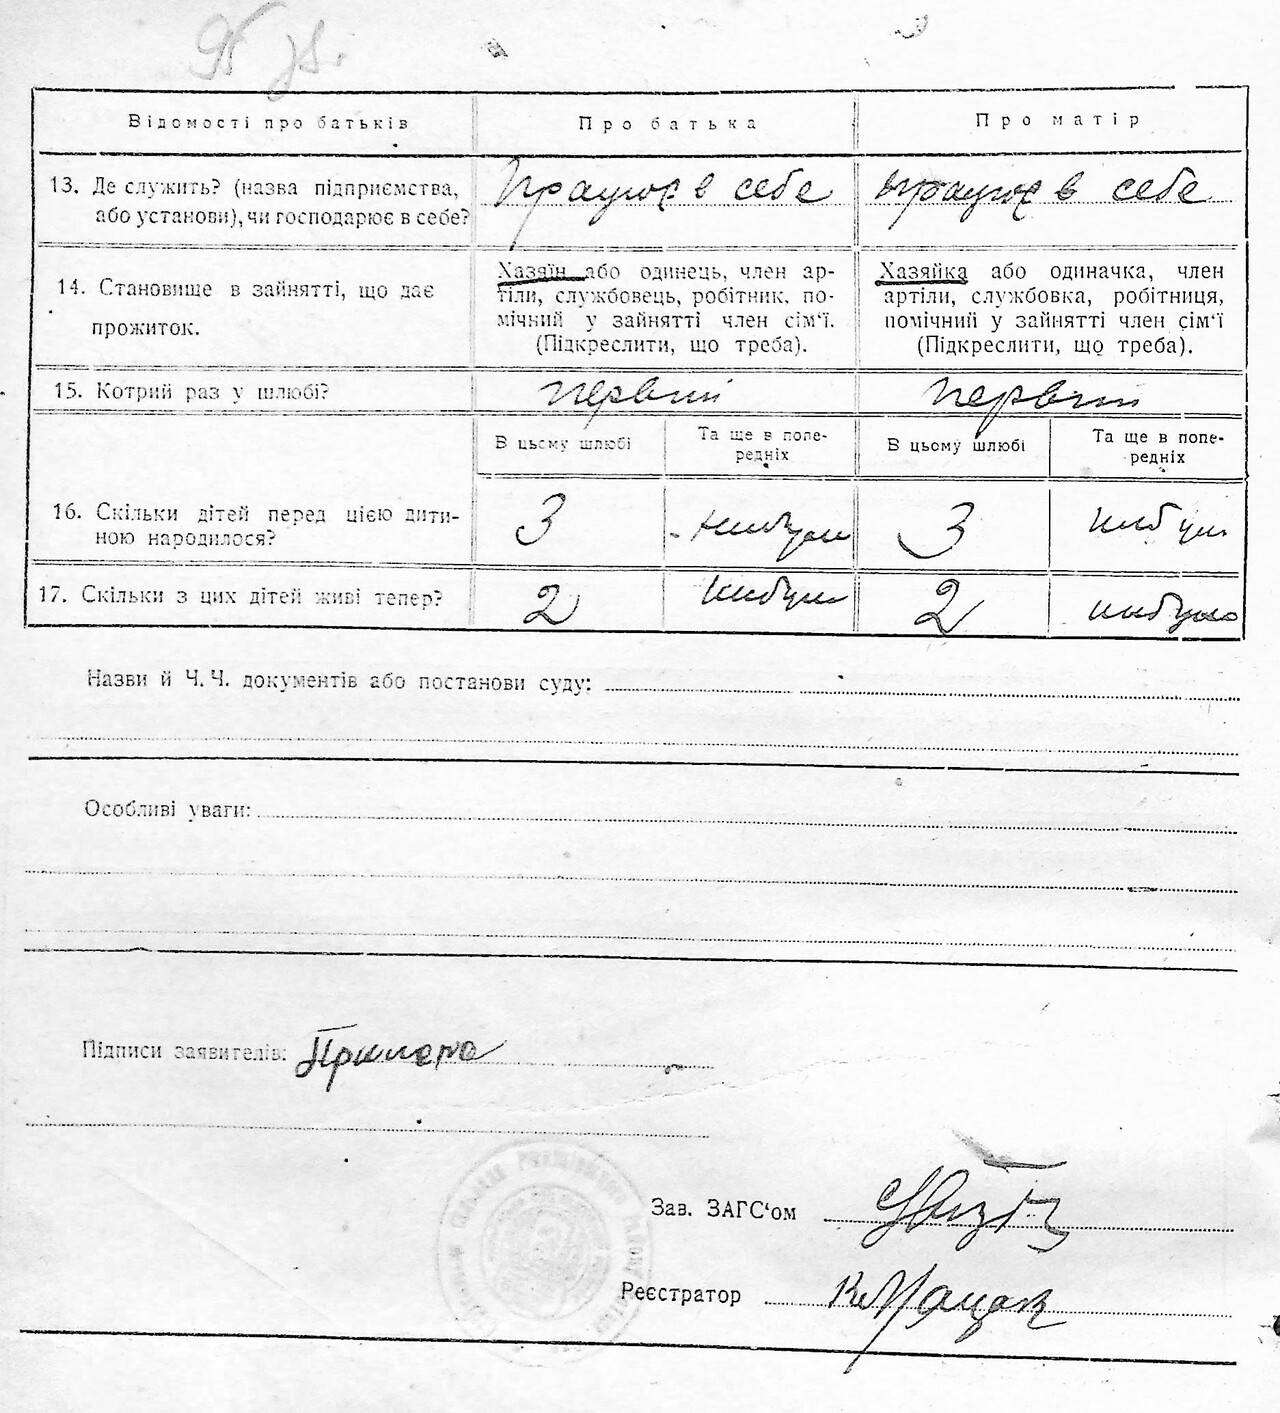 95 зв.
Відомості про батьків
Про батька
Про матір
13. Де служить? (назва підприємства,
або установи), чи господарює в себе?
Працює в себе
працює в себе
14. Становище в зайнятті, що дає
прожиток.
Хазяїн або одинець, член ар-
тіли, службовець, робітник, по-
мічний у зайнятті член сім‘ї.
(Підкреслити, що треба).
Хазяйка або одиначка, член
артіли, службовка, робітниця,
помічний у зайнятті член сім‘ї
(Підкреслити, що треба).
15. Котрий раз у шлюбі?
первий
первий
В цьому шлюбі
Та ще в попе-
редніх
В цьому шлюбі
Та ще в попе-
редніх
16. Скільки дітей перед цією дити-
ною народилося?
3
3
17. Скільки з цих дітей живі тепер?
2
2
Назви й Ч. Ч. документів або постанови суду:
Особливі уваги:
Підписи заявителів:
Зав. ЗАГС‘ом
Реєстратор